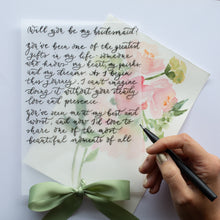 Will you be my bridesmaid?
You've been one of the greatest
gifts in my life: someone
who knows my heart, my quirks
and my dreams. As I begin
this journey, I can't imagine
doing it without your steady
love and presence.
You've seen me at my best and
worst, and now I'd love to
share one of the most
beautiful moments of all.